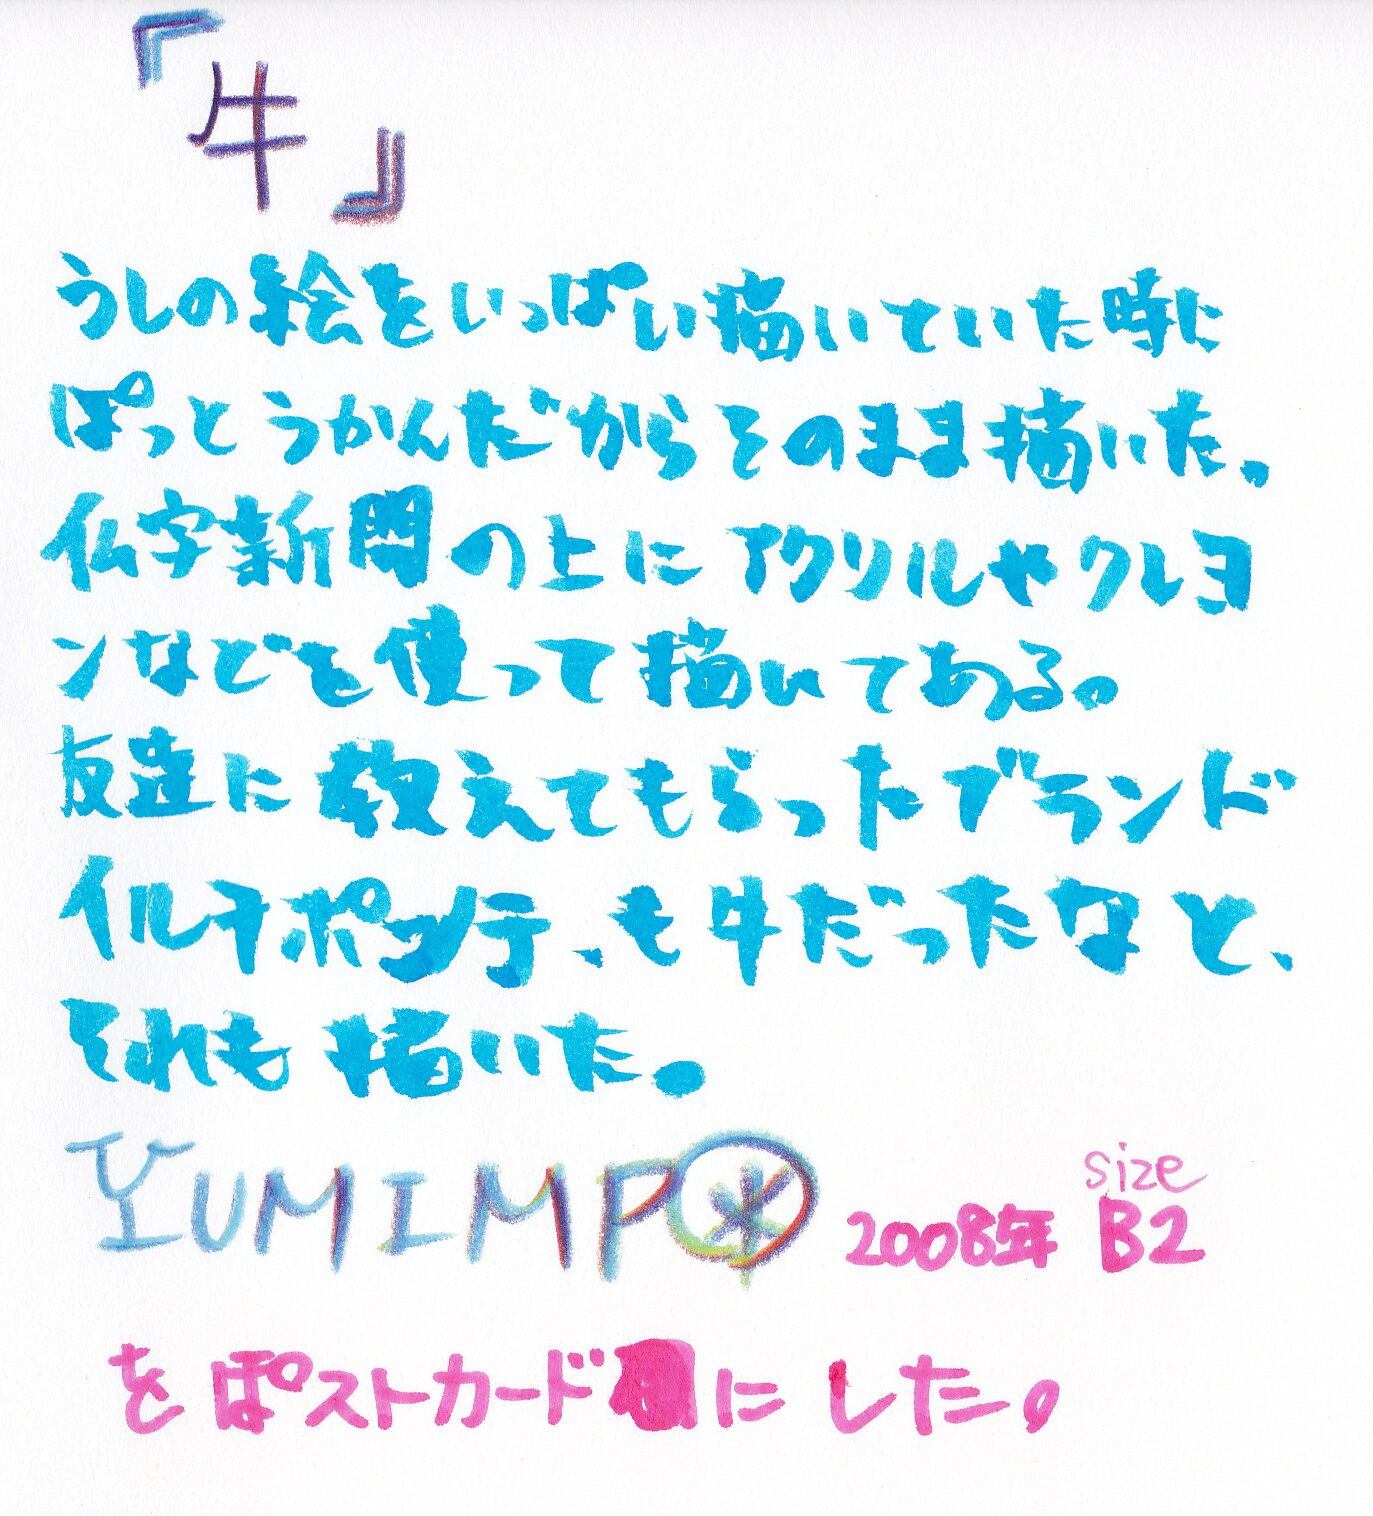 『牛』
うしの絵をいっぱい描いていた時に
ぽっとうかんだからそのまま描いた。
仏字新聞の上にアクリルやクレヨ
ンなどを使って描いてある。
友達に教えてもらったブランド
イルチポンテ、も牛だったなと、
それも描いた。
YUMIMPO
size
2008年 B2
をぽストカードにした。